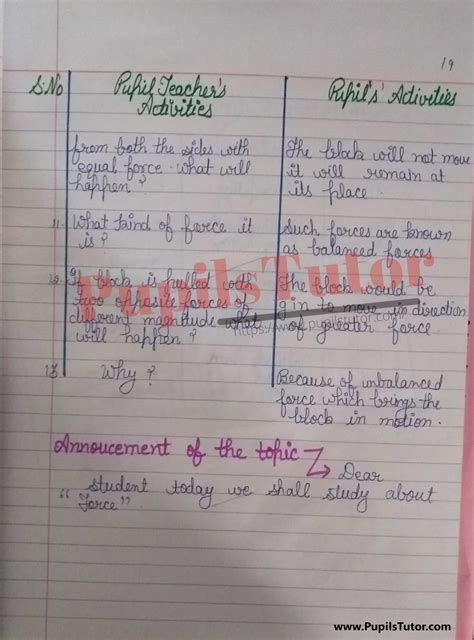 19
S.No Pupil Teacher's Activities Pupil's Activities
from both the sides with
equal force. what will
happen?
The block will not move
it will remain at
its place.
11. What kind of force it
is?
Such forces are known
as balanced forces
12. If block is pulled with
two opposite forces of
different magnitude what
will happen?
The block would be
gin to move in direction
of greater force
13. Why?
Because of unbalanced
force which brings the
block in motion.
PupilsTutor
https://www.pupilstutor.com/
Annoucement of the topic
Dear
"student today we shall study about
Force"
www.PupilsTutor.com